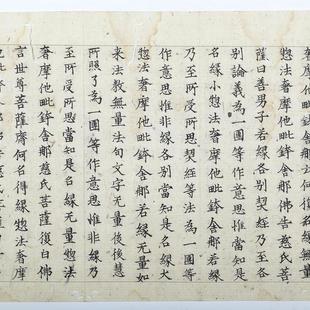 奢摩他毗鉢舍那云何復名緣无量
惣法奢摩他毗鉢舍那佛告慈氏菩
薩曰善男子若緣各別契經乃至各
別論義為一團等作意思惟當知是
名緣小惣法奢摩他毗鉢舍那若緣
乃至所受所思契經等法為一團等
作意思惟非緣各別當知是名緣大
惣法奢摩他毗鉢舍那若緣无量如
来法教無量法句文字無量後後慧
所照了為一團等作意思惟非緣乃
至所受所思當知是名緣无量惣法
奢摩他毗鉢舍那慈氏菩薩復白佛
言世尊菩薩齊何名得緣惣法奢摩